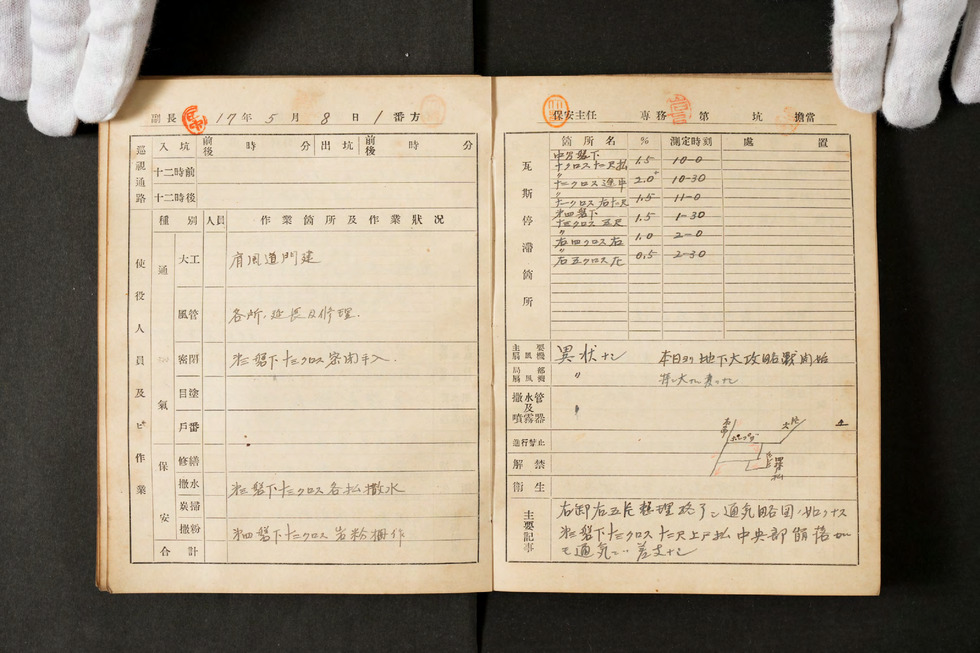 副長 17年5月8日1番方
巡視通路
入坑 前後 時 分 出坑 前後 時 分
十二時前
十二時後
使役人員及ビ作業
種別 人員 作業箇所及作業狀况
通氣
大工 肩風道門建
風管 各所、延長及修理.
密閉 第三盤下十三クロス密閉手入.
目塗
戶番
保安
修繕
撒水 第三盤下十三クロス各払撒水
炭掃
撒粉 第四盤下十三クロス岩粉棚作
合計
保安主任 専務 第 坑 擔當
瓦斯停滯箇所
箇所名 % 測定時刻 處置
十クロス十二尺払 1.5 10-0
〃
2.0 10-30
〃
1.5 11-0
第四盤下
十三クロス五尺 1.5 1-30
〃
右四クロス右 1.0 2-0
〃
右五クロス 0.5 2-30
主要扇風機 異状ナシ
本日ヨリ地下大攻略戰開始
局部扇風機 〃
撒水管及噴霧器 〃
進行禁止
解禁
衛生
主要記事
右卸右五尺整理終了シ通気略図ノ如クナス
第三盤下十三クロス十二尺上戸払中央部崩落
モ通気ニハ差支ナシ